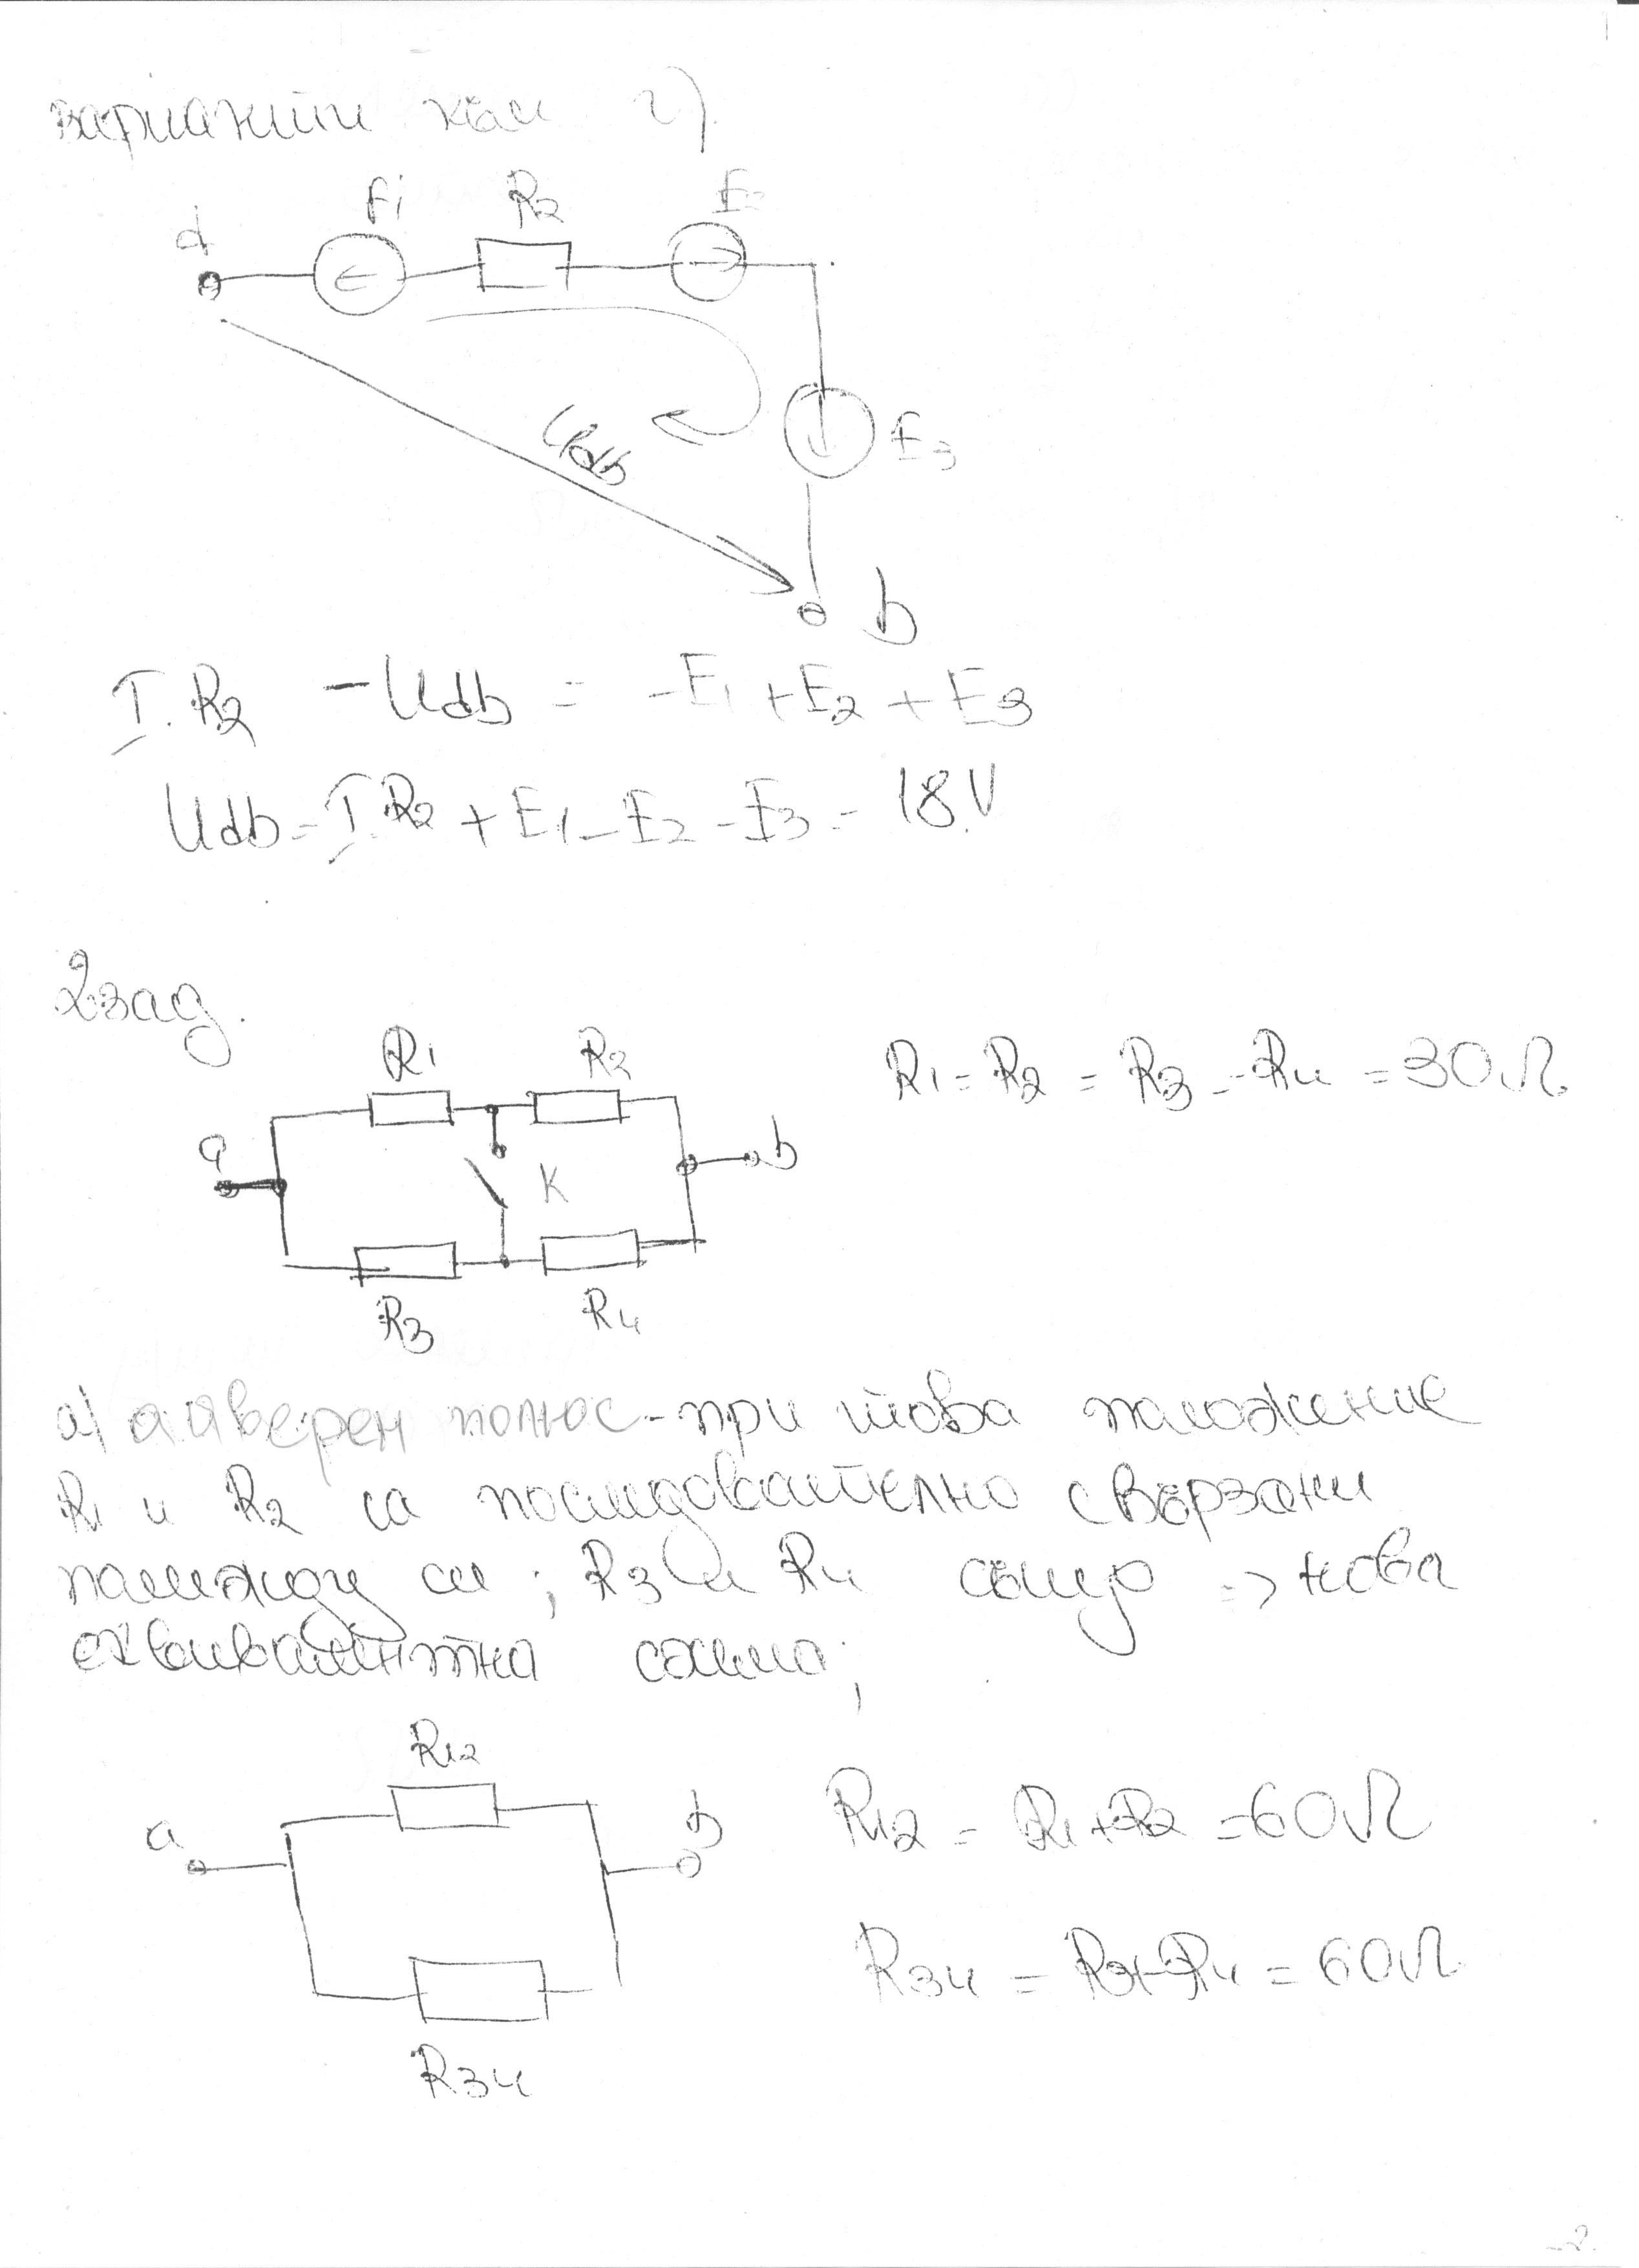 варианти към г)
d E1 R2 E2
Udb E3
b
I.R2 - Udb = -E1 + E2 + E3
Udb = I.R2 + E1 - E2 - E3 = 18V
2зад.
R1 R2 R1 = R2 = R3 = R4 = 30Ω
a K b
R3 R4
а) отворен полюс - при това положение
R1 и R2 са последователно свързани
помежду си; R3 и R4 също => нова
еквивалентна схема;
R12
a b R12 = R1 + R2 = 60Ω
R34 = R3 + R4 = 60Ω
R34